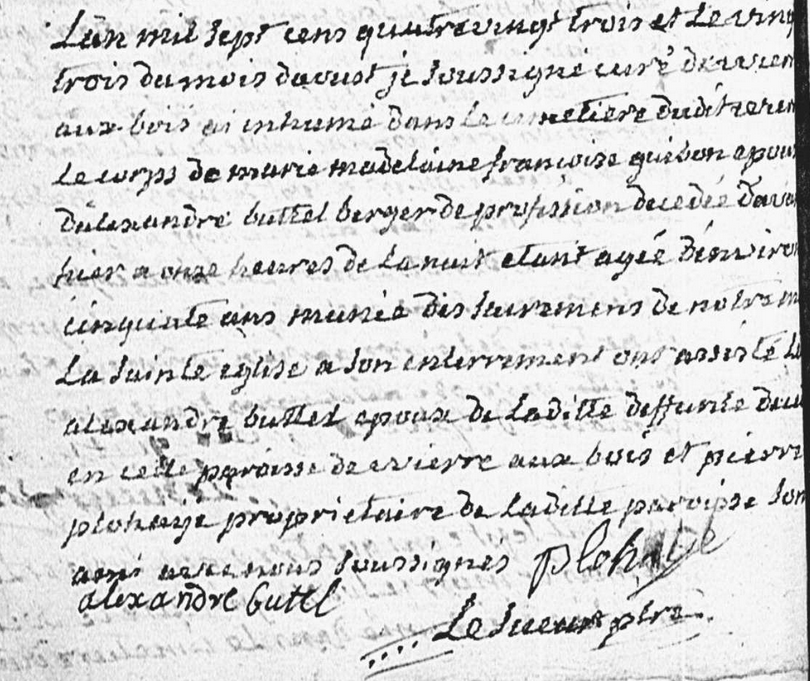 Lan mil sept cens quatrevingt trois et le ving
trois du mois daoust je soussigné curé de wierre
aux bois ai inhumé dans le cimetiere dudit wierre
le corps de marie madelaine françoise quibon epou
dalexandre buttel berger de profission decedée dava
hier a onze heures de la nuit etant agée denviron
cinquante ans munie des sacremens de notre m
La sainte eglise a son enterrement ont assisté
alexandre buttel epoux de laditte deffunte
en cette paroisse de wierre aux bois et pierre
plohaije proprietaire de laditte paroisse son
ami avec nous soussignés plohaije
alexandre buttel
Le sueur ptre